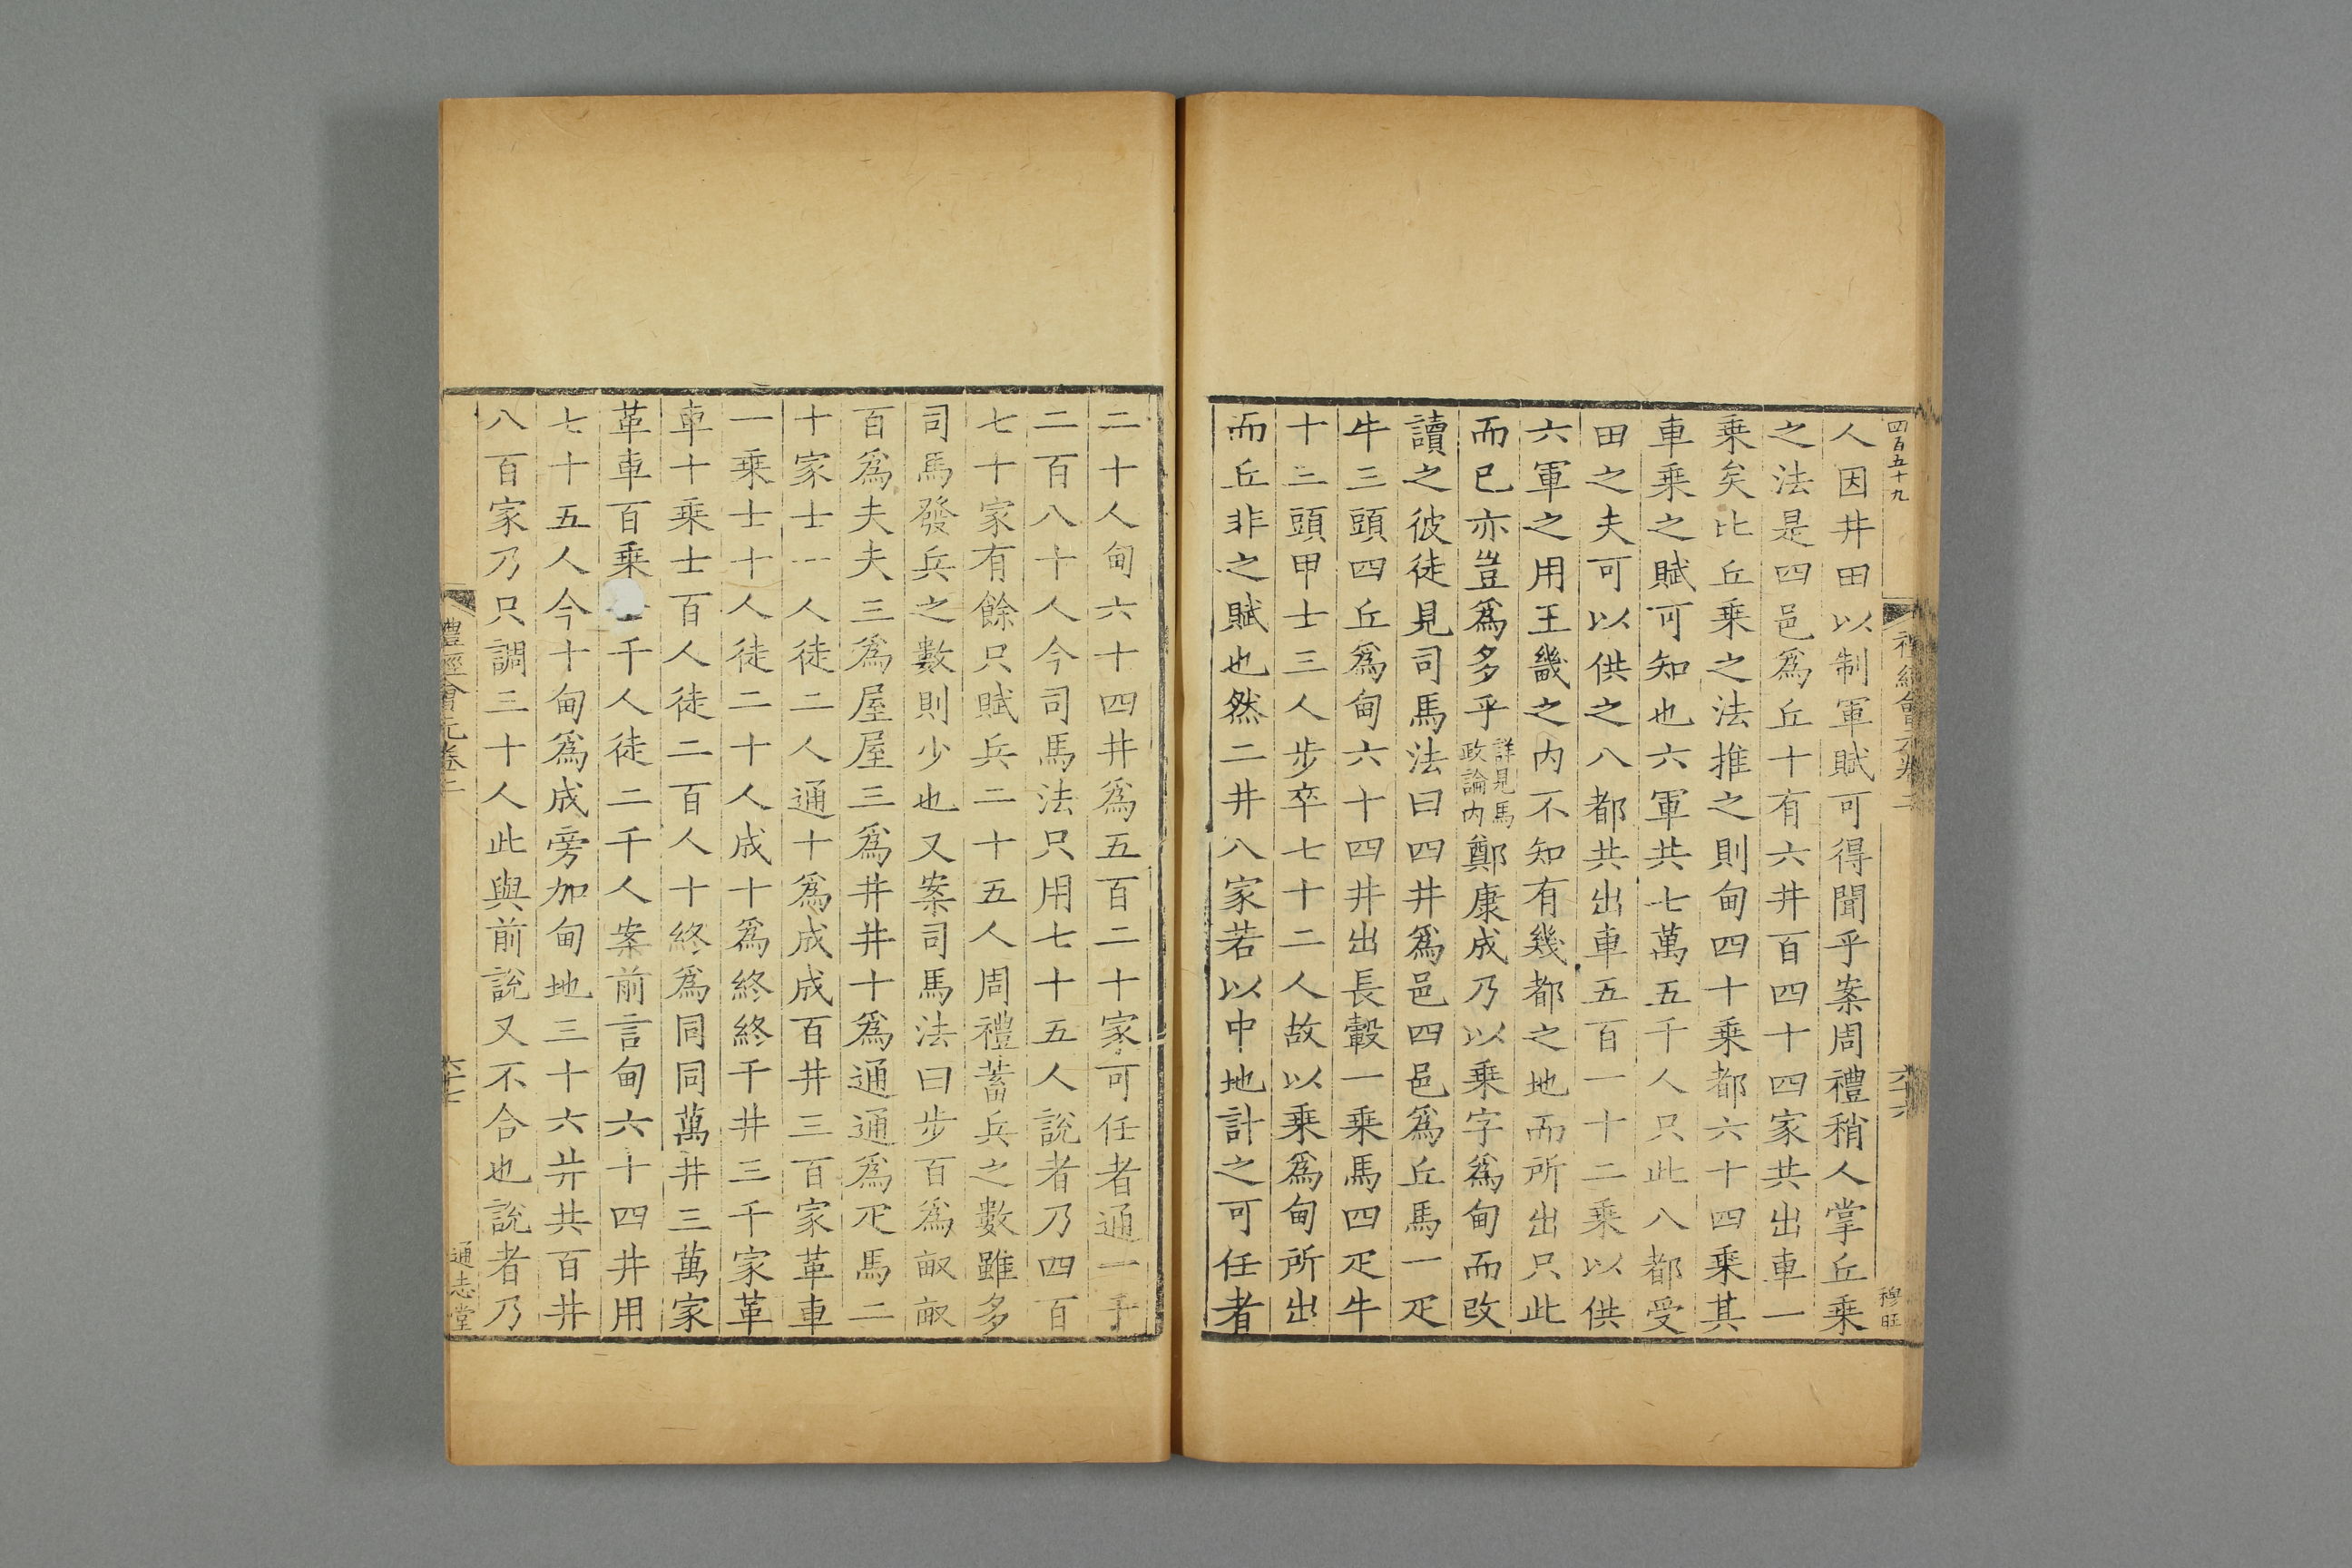 四百五十九
禮經會元卷二
六十六
穆旺
人因井田以制軍賦可得聞乎案周禮稍人掌丘乗
之法是四邑爲丘十有六井百四十四家共出車一
乗矣比丘乗之法推之則甸四十乗都六十四乗其
車乗之賦可知也六軍共七萬五千人只此八都受
田之夫可以供之八都共出車五百一十二乗以供
六軍之用王畿之内不知有幾都之地而所出只此
而已亦豈爲多乎詳見馬政論内鄭康成乃以乗字爲甸而改
讀之彼徒見司馬法曰四井爲邑四邑爲丘馬一疋
牛三頭四丘爲甸六十四井出長轂一乗馬四疋牛
十二頭甲士三人步卒七十二人故以乗爲甸所出
而丘非之賦也然二井八家若以中地計之可任者
二十人甸六十四井爲五百二十家可任者通一千
二百八十人今司馬法只用七十五人說者乃四百
七十家有餘只賦兵二十五人周禮蓄兵之數雖多
司馬發兵之數則少也又案司馬法曰步百爲畝畝
百爲夫夫三爲屋屋三爲井井十爲通通爲疋馬二
十家士一人徒二人通十爲成成百井三百家革車
一乗士十人徒二十人成十爲終終千井三千家革
車十乗士百人徒二百人十終爲同同萬井三萬家
革車百乗千人徒二千人案前言甸六十四井用
七十五人今十甸爲成旁加甸地三十六井共百井
八百家乃只調三十人此與前說又不合也說者乃
禮經會元卷二
六十七
通志堂